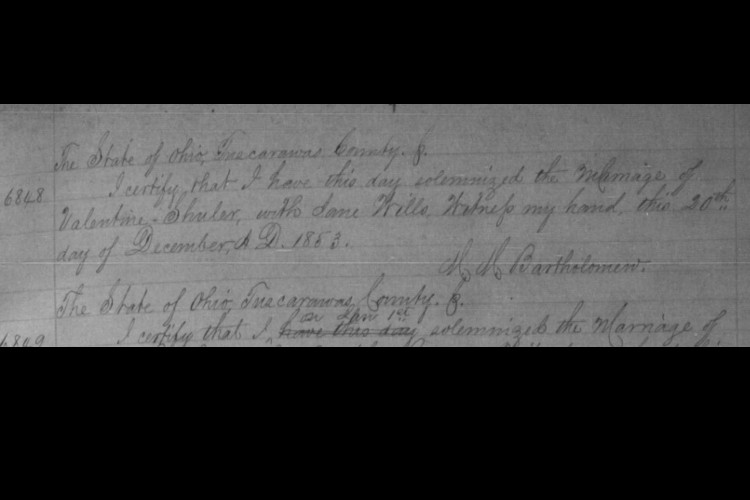 The State of Ohio, Tuscarawas County. S.
6848 I certify, that I have this day solemnized the Marriage of
Valentine Shuler, with Jane Wills. Witneſs my hand, this 20th
day of December, A D. 1853.
M M Bartholomew.
The State of Ohio, Tuscarawas County. S.
on Jan 1st
I certify that I have this day solemnized the Marriage of